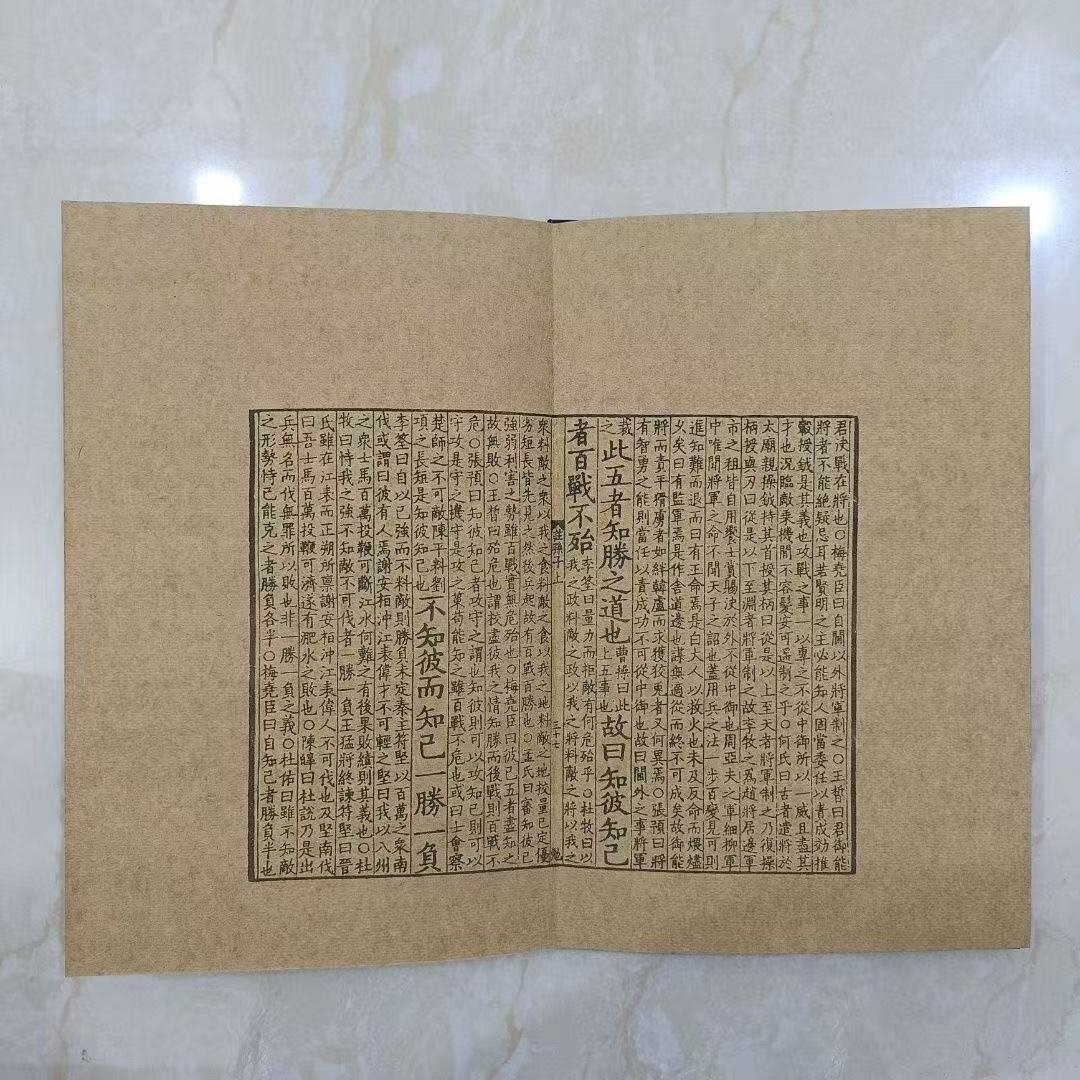 君决戰在將也〇梅堯臣曰自閫以外將軍制之〇王晳曰君御能
將者不能絶疑忌耳若賢明之主必能知人固當委任以責成効推
轂授鉞是其義也攻戰之事一以專之不從中御所以一威且盡其
才也況臨敵乗機間不容髮安可遥制之乎〇何氏曰古者遣將於
太廟親操鉞持其首授其柄曰從是以上至天者將軍制之乃復操
柄授與刃曰從是以下至淵者將軍制之故李牧之爲趙將居邊軍
市之租皆自用饗士賞賜决於外不從中御也周亞夫之軍細柳軍
中唯聞將軍之命不聞天子之詔也蓋用兵之法一步百變見可則
進知難而退而曰有王命焉是白大人以救火也未及反命而煨燼
久矣曰有監軍焉是作舍道邊也謀無適從而終不可成矣故御能
將而責平猾虜者如絆韓盧而求獲狡兎者又何異焉〇張預曰將
有智勇之能則當任以責成功不可從中御也故曰閫外之事將軍
裁之此五者知勝之道也曹操曰此上五事也故曰知彼知己
者百戰不殆李筌曰量力而拒敵有何危殆乎〇杜牧曰以
我之政料敵之政以我之將料敵之將以我之
註孫子上 三十七
衆料敵之衆以我之食料敵之食以我之地料敵之地校量已定優
劣短長皆先見之然後兵起故有百戰百勝也〇孟氏曰審知彼己
強弱利害之勢雖百戰實無危殆也〇梅堯臣曰彼己五者盡知之
故無敗〇王晳曰殆危也謂校盡彼我之情知勝而後戰則百戰不
危〇張預曰知彼知己者攻守之謂也知彼則可以攻知己則可以
守攻是守之機守是攻之策苟能知之雖百戰不危也或曰士會察
楚師之不可敵陳平料劉
項之長短是知彼知己也不知彼而知己一勝一負
李筌曰自以己強而不料敵則勝負未定秦主苻堅以百萬之衆南
伐或謂曰彼有人焉謝安桓沖江表偉才不可輕之堅曰我以八州
之衆士馬百萬投鞭可斷江水何難之有後果敗績則其義也〇杜
牧曰恃我之強不知敵不可伐者一勝一負王猛將終諫苻堅曰晉
氏雖在江表而正朔所禀謝安桓沖江表偉人不可伐也及堅南伐
曰吾士馬百萬投鞭可濟遂有肥水之敗也〇陳皥曰杜說乃是出
兵無名而伐無罪所以敗也非一勝一負之義〇杜佑曰雖不知敵
之形勢恃己能克之者勝負各半〇梅堯臣曰自知己者勝負半也